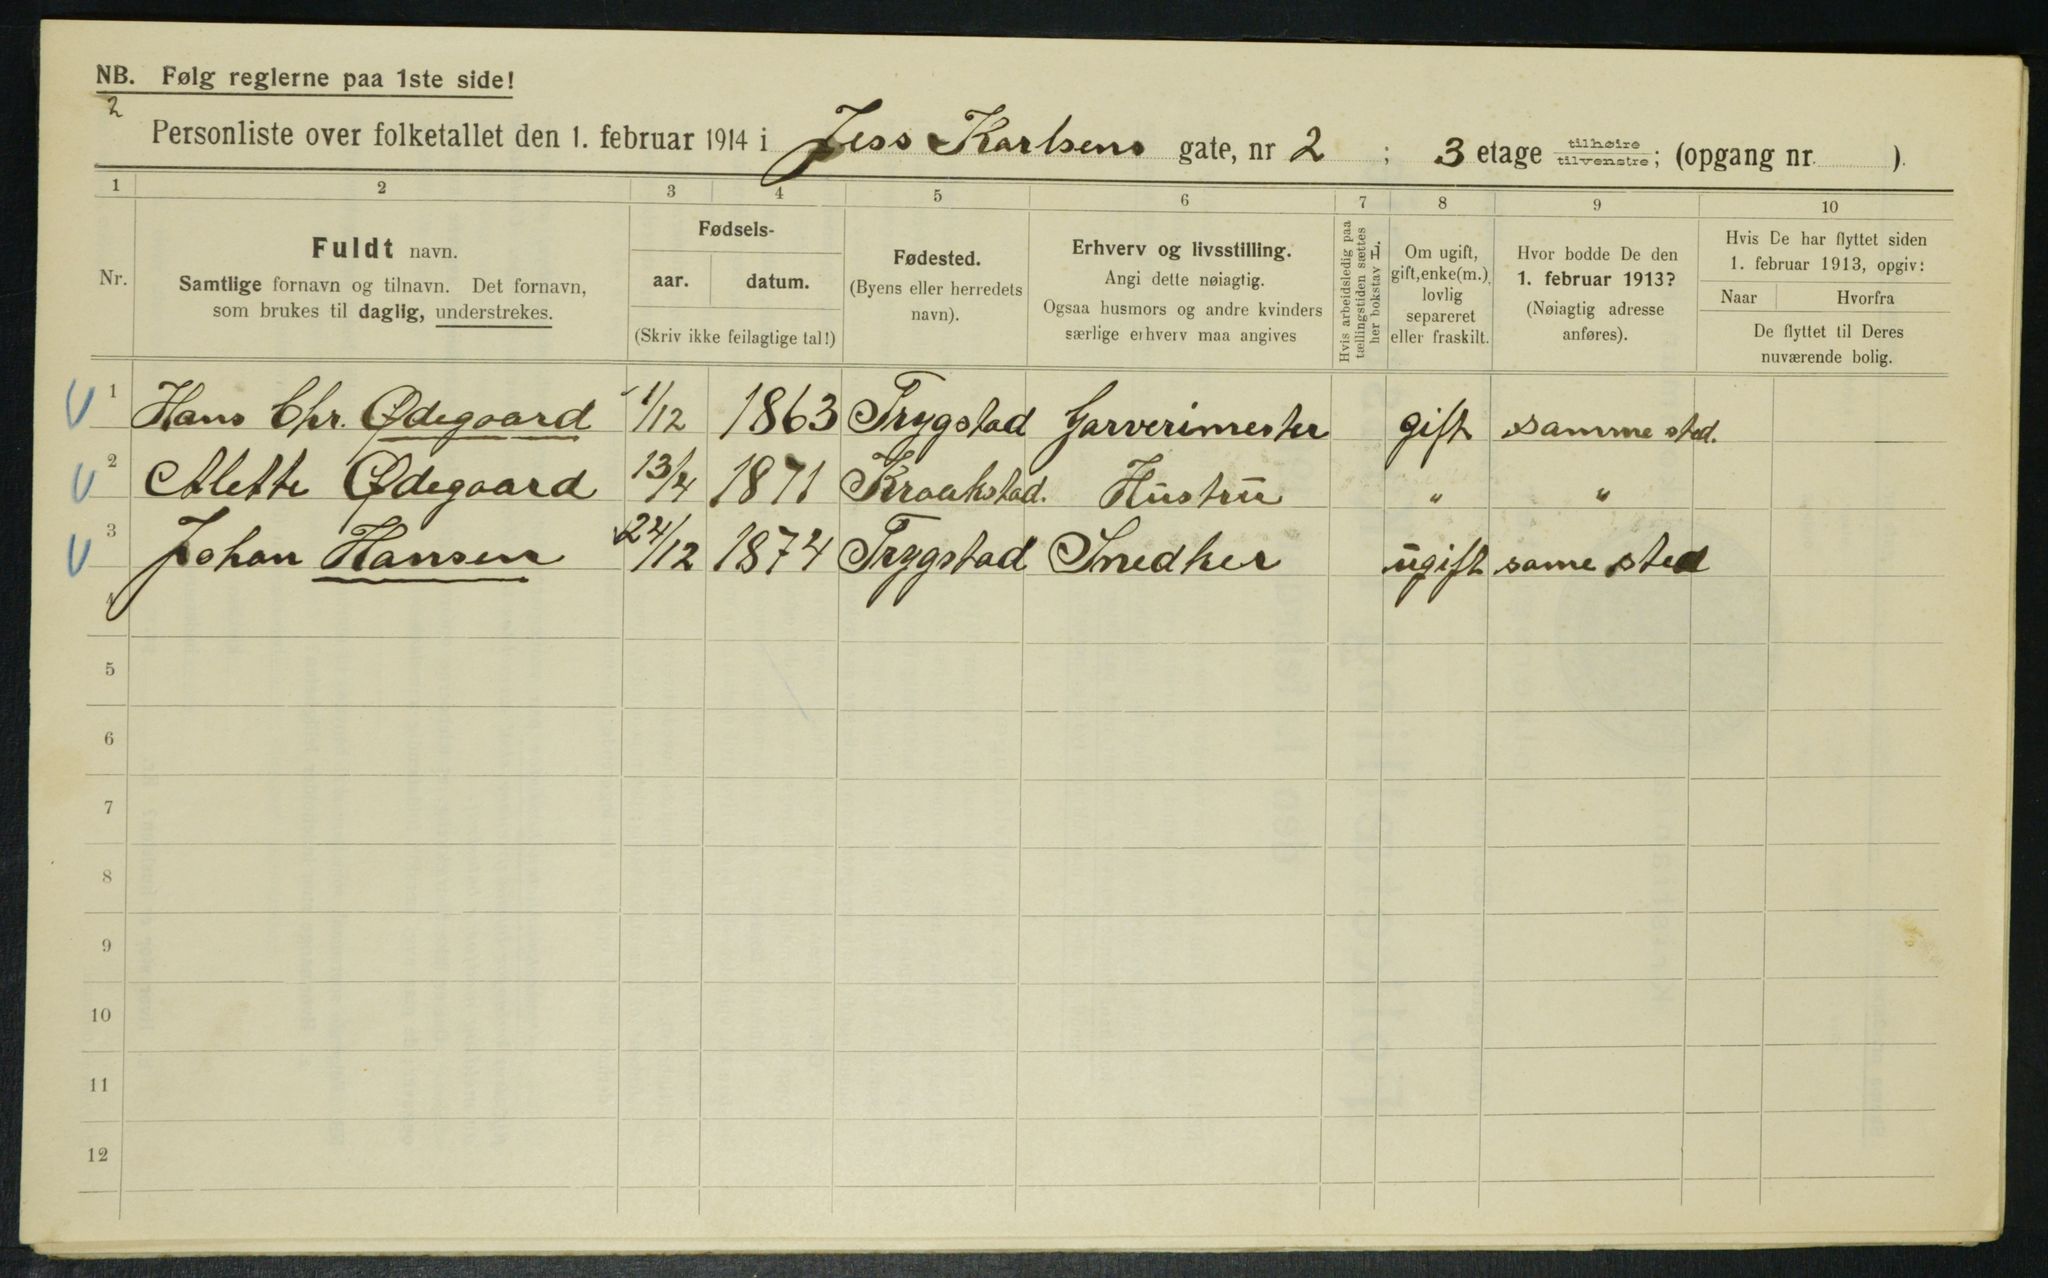 NB. Følg reglerne paa 1ste side!
2
Personliste over folketallet den 1. februar 1914 i Jess Karlsens gate, nr 2 ; 3 etage tilhøire tilvenstre; (opgang nr. ).
1 2 3 4 5 6 7 8 9 10
Nr.
Fuldt navn.
Samtlige fornavn og tilnavn. Det fornavn,
som brukes til daglig, understrekes.
Fødsels-
aar. datum.
(Skriv ikke feilagtige tal!)
Fødested.
(Byens eller herredets
navn).
Erhverv og livsstilling.
Angi dette nøiagtig.
Ogsaa husmors og andre kvinders
særlige erhverv maa angives
Hvis arbeidsledig paa
tællingstiden sættes
her bokstav L.
Om ugift,
gift, enke(m.),
lovlig
separeret
eller fraskilt.
Hvor bodde De den
1. februar 1913?
(Nøiagtig adresse
anføres).
Hvis De har flyttet siden
1. februar 1913, opgiv:
Naar Hvorfra
De flyttet til Deres
nuværende bolig.
1 Hans Chr. Ødegaard 1/12 1863 Trygstad Garverimester gift samme sted.
2 Alette Ødegaard 13/4 1871 Kraakstad. Hustru " "
3 Johan Hansen 24/12 1874 Trygstad Snedker ugift same sted
4
5
6
7
8
9
10
11
12